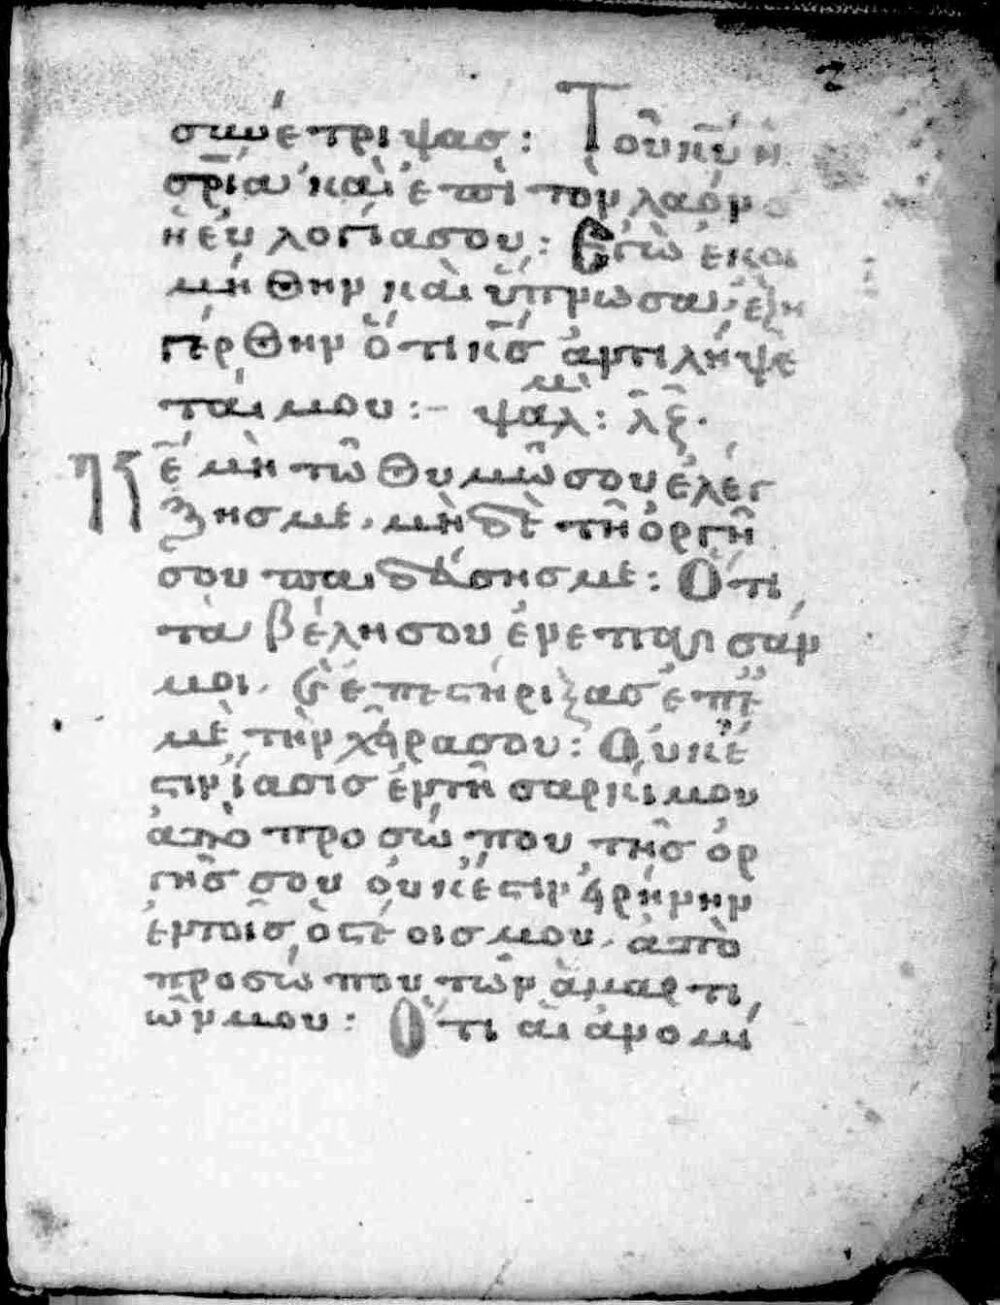 συνέτριψασ: Τοῦ κ̅υ̅ ἡ
σ̅ρ̅ία καὶ ἐπὶ τὸν λαόν σ
ἡ εὐλογία σου: Ἐγὼ ἐκοι
μήθην καὶ ὕπνωσα, ἐξη
γέρθην ὅτι κ̅σ̅ ἀντιλήψε
ταί μου:– ψαλμ: λζ.
Κ̅ε̅ μὴ τῶ θυμῶ σου ἐλέγ
ξησ με, μὴ δὲ τῆ ὀργῆ
σου παιδεύσησ με: Ὅτι
τὰ βέλη σου ἐνεπάγησάν
μοι, καὶ ἐπεστήριξασ ἐπ'
ἐμὲ τὴν χῆρα σου: Οὐκ ἔ
στιν ἴασισ ἐν τῆ σαρκί μου
ἀπὸ προσώπου τῆσ ὀρ
γῆσ σου οὐκ ἔστιν εἰρήνην
ἐν τοῖσ ὀστέοισ μου, ἀπὸ
προσώπου τῶν ἁμαρτι
ῶν μου: Ὅτι αἱ ἀνομί